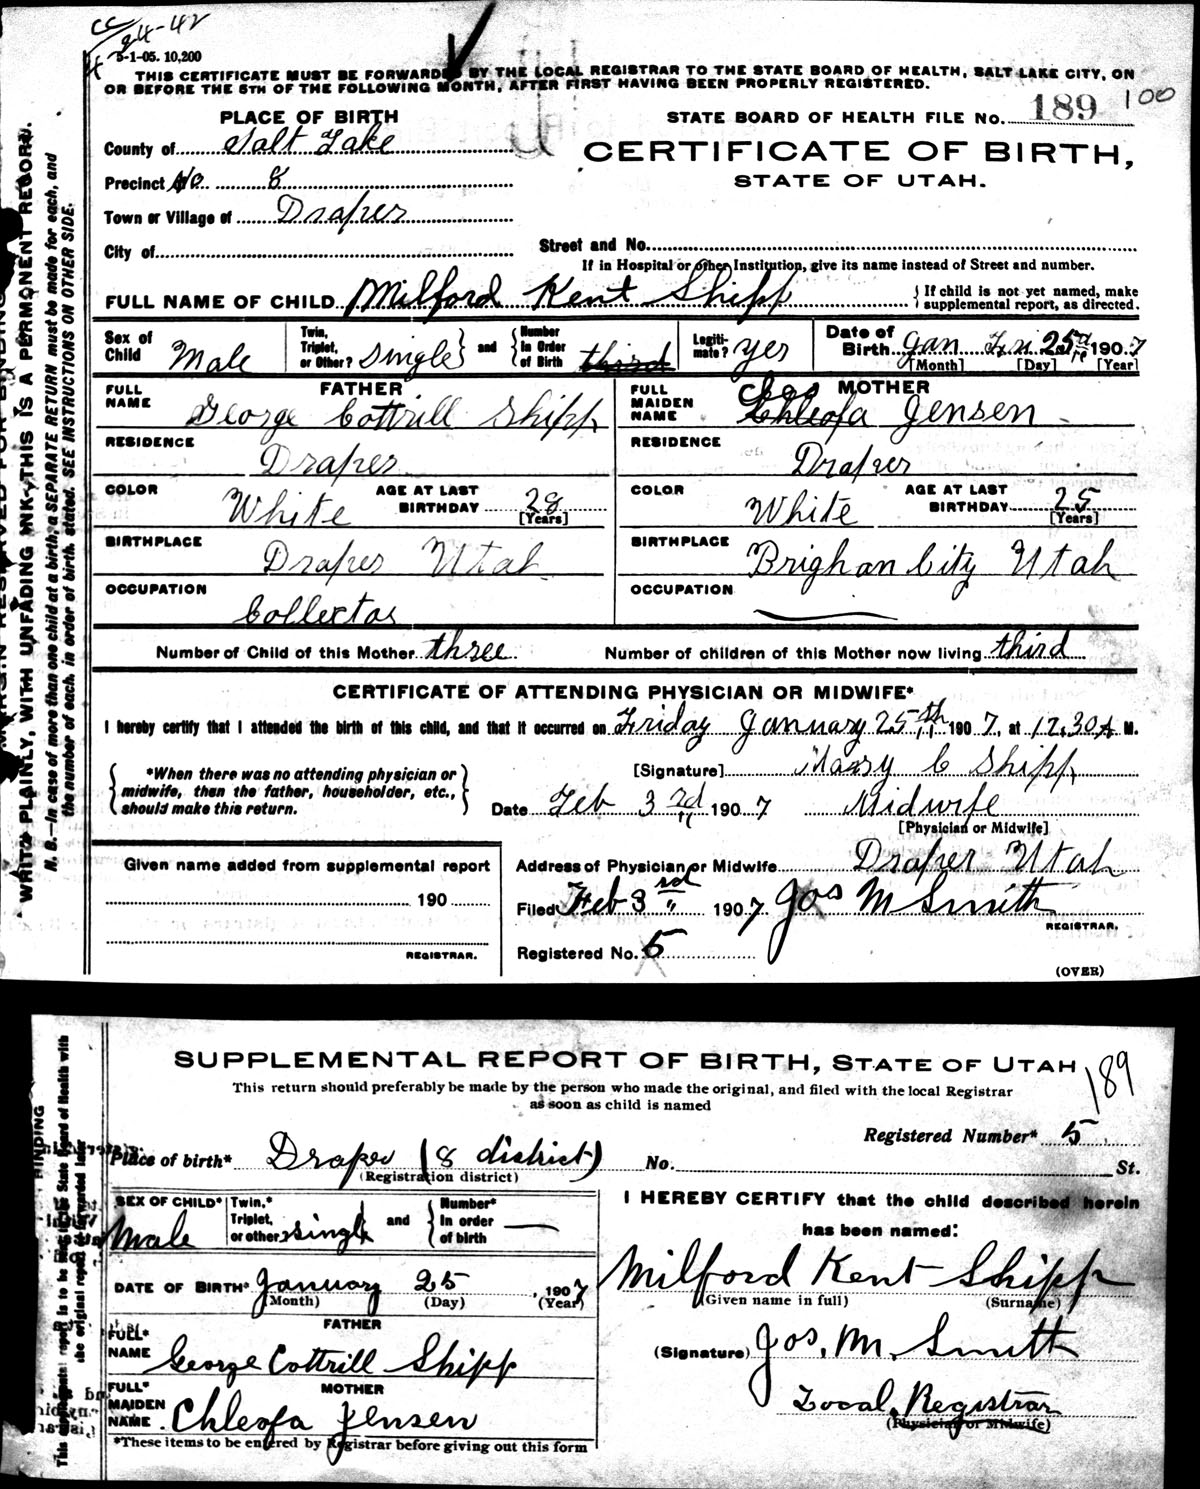 cc
24-42
5-1-05. 10,200
THIS CERTIFICATE MUST BE FORWARDED BY THE LOCAL REGISTRAR TO THE STATE BOARD OF HEALTH, SALT LAKE CITY, ON
OR BEFORE THE 5TH OF THE FOLLOWING MONTH, AFTER FIRST HAVING BEEN PROPERLY REGISTERED.
PLACE OF BIRTH
STATE BOARD OF HEALTH FILE No. 189 100
County of Salt Lake
CERTIFICATE OF BIRTH,
STATE OF UTAH.
Precinct No. 8
Town or Village of Draper
City of
Street and No.
If in Hospital or other Institution, give its name instead of Street and number.
FULL NAME OF CHILD Milford Kent Shipp
If child is not yet named, make
supplemental report, as directed.
Sex of Child Male
Twin, Triplet, or Other? single and Number in Order of Birth third
Legitimate? yes
Date of Birth Jan Fri 25 1907
[Month] [Day] [Year]
FATHER
FULL NAME George Cottrill Shipp
RESIDENCE Draper
COLOR White AGE AT LAST BIRTHDAY 28
[Years]
BIRTHPLACE Draper Utah
OCCUPATION Collector
MOTHER
FULL MAIDEN NAME Chleofa Jensen
RESIDENCE Draper
COLOR White AGE AT LAST BIRTHDAY 25
[Years]
BIRTHPLACE Brighan City Utah
OCCUPATION
Number of Child of this Mother three Number of children of this Mother now living third
CERTIFICATE OF ATTENDING PHYSICIAN OR MIDWIFE*
I hereby certify that I attended the birth of this child, and that it occurred on Friday January 25th 1907, at 12.30 A M.
*When there was no attending physician or
midwife, then the father, householder, etc.,
should make this return.
[Signature] Mary C Shipp
Date Feb 3rd 1907 Midwife
[Physician or Midwife]
Given name added from supplemental report
190
REGISTRAR.
Address of Physician or Midwife Draper Utah
Filed Feb 3rd 1907 Jos M Smith
REGISTRAR.
Registered No. 5
(OVER)
WRITE PLAINLY, WITH UNFADING INK—THIS IS A PERMONENT RECORD.
N. B.—In case of more than one child at a birth, a SEPARATE RETURN must be made for each, and
the number of each, in order of birth, stated. SEE INSTRUCTIONS ON OTHER SIDE.
SUPPLEMENTAL REPORT OF BIRTH, STATE OF UTAH
189
This return should preferably be made by the person who made the original, and filed with the local Registrar
as soon as child is named
Registered Number* 5
Place of birth* Draper (8 district) No. St.
(Registration district)
SEX OF CHILD* Male
Twin,* Triplet, or other single and Number* In order of birth
DATE OF BIRTH* January 25, 1907
(Month) (Day) (Year)
FATHER
FULL* NAME George Cottrill Shipp
MOTHER
FULL* MAIDEN NAME Chleofa Jensen
*These items to be entered by Registrar before giving out this form
I HEREBY CERTIFY that the child described herein
has been named:
Milford Kent Shipp
(Given name in full) (Surname)
(Signature) Jos. M. Smith
Local Registrar
(Physician or Midwife)